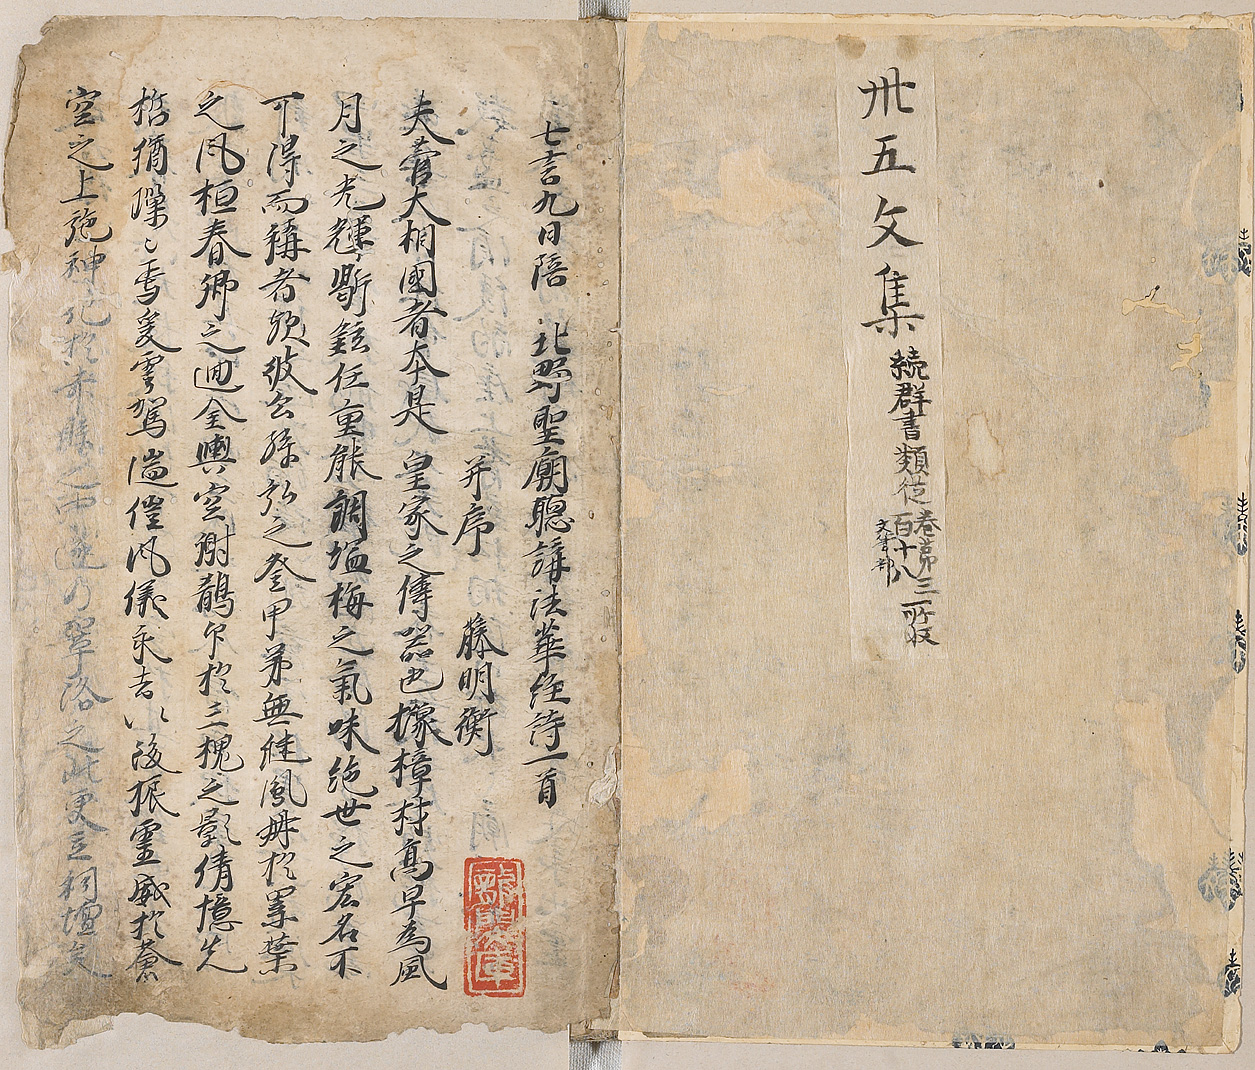 卅五文集
続群書類従
巻第三
百十八
文筆部
所収
七言九日陪 北野聖廟聴講法華経詩一首
并序 藤明衡
夫菅大相國者本是 皇家之傳器也櫲樟材高早為風
月之光輝鼎鉉任重能調塩梅之氣味絶世之宏名不
可得而稱者歟彼公孫弘之登甲弟無継風毋於累葉
之風桓春卿之迴金輿空謝鵲印於三槐之影倩憶先
哲猶蹀〻焉爰雲駕湍俀風儀永去以後振霊威於蒼
空之上施神化於赤縣之中遂乃翠洛之北更立祠壇矣